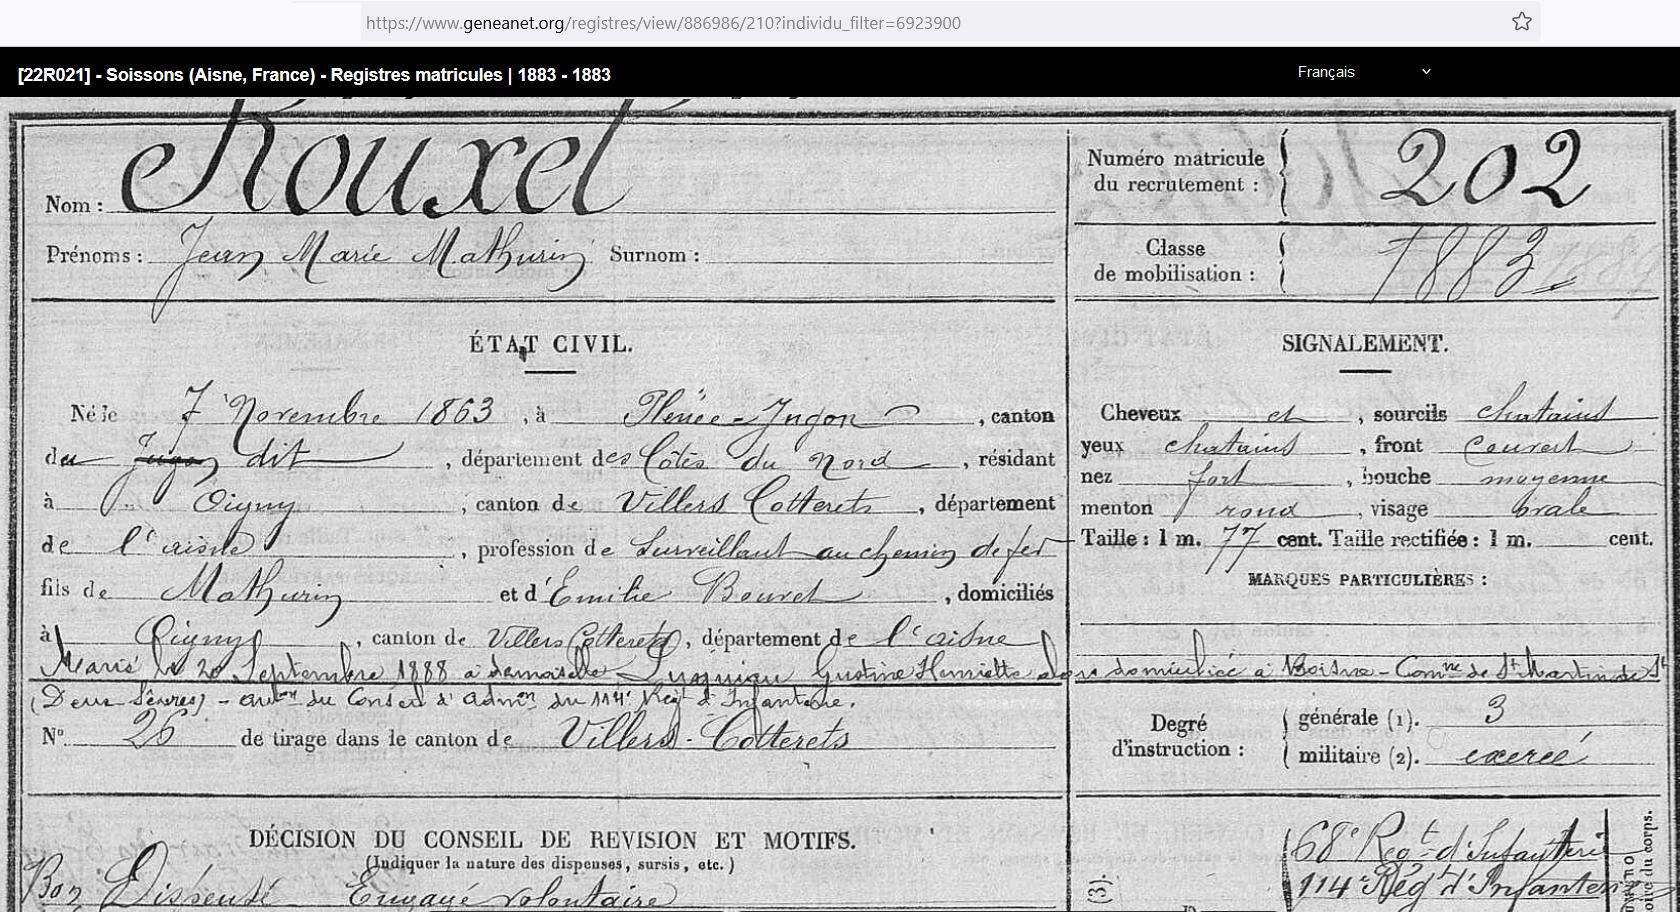 https://www.geneanet.org/registres/view/886986/210?individu_filter=6923900
[22R021] - Soissons (Aisne, France) - Registres matricules | 1883 - 1883
Français
Nom : Rouxel
Prénoms : Jean Marie Mathurin Surnom :
Numéro matricule du recrutement : 202
Classe de mobilisation : 1883
ÉTAT CIVIL.
Né le 7 Novembre 1863, à Plénée-Jugon, canton
du Jugon dit, département des Côtes du Nord, résidant
à Oigny, canton de Villers Cotterets, département
de l'aisne, profession de Surveillant au chemin de fer
fils de Mathurin et d'Emilie Bouret, domiciliés
à Oigny, canton de Villers Cotterets, département de l'aisne
Marié le 20 Septembre 1888 à demoiselle Gustine Henriette alors domiciliée à Boisne - Comne de St Martin de St
(Deux Sèvres) - auton du Conseil d'admon du 114e Régt d'Infanterie.
No 26 de tirage dans le canton de Villers-Cotterets
SIGNALEMENT.
Cheveux et, sourcils chatains
yeux chatains, front couvert
nez fort, bouche moyenne
menton rond, visage ovale
Taille : 1 m. 77 cent. Taille rectifiée : 1 m. cent.
MARQUES PARTICULIÈRES :
Degré d'instruction :
générale (1). 3
militaire (2). exercé
DÉCISION DU CONSEIL DE REVISION ET MOTIFS.
(Indiquer la nature des dispenses, sursis, etc.)
Bon Dispensé Engagé volontaire
68e Regt d'Infanterie
114e Rég d'Infanterie
(3).
du corps.